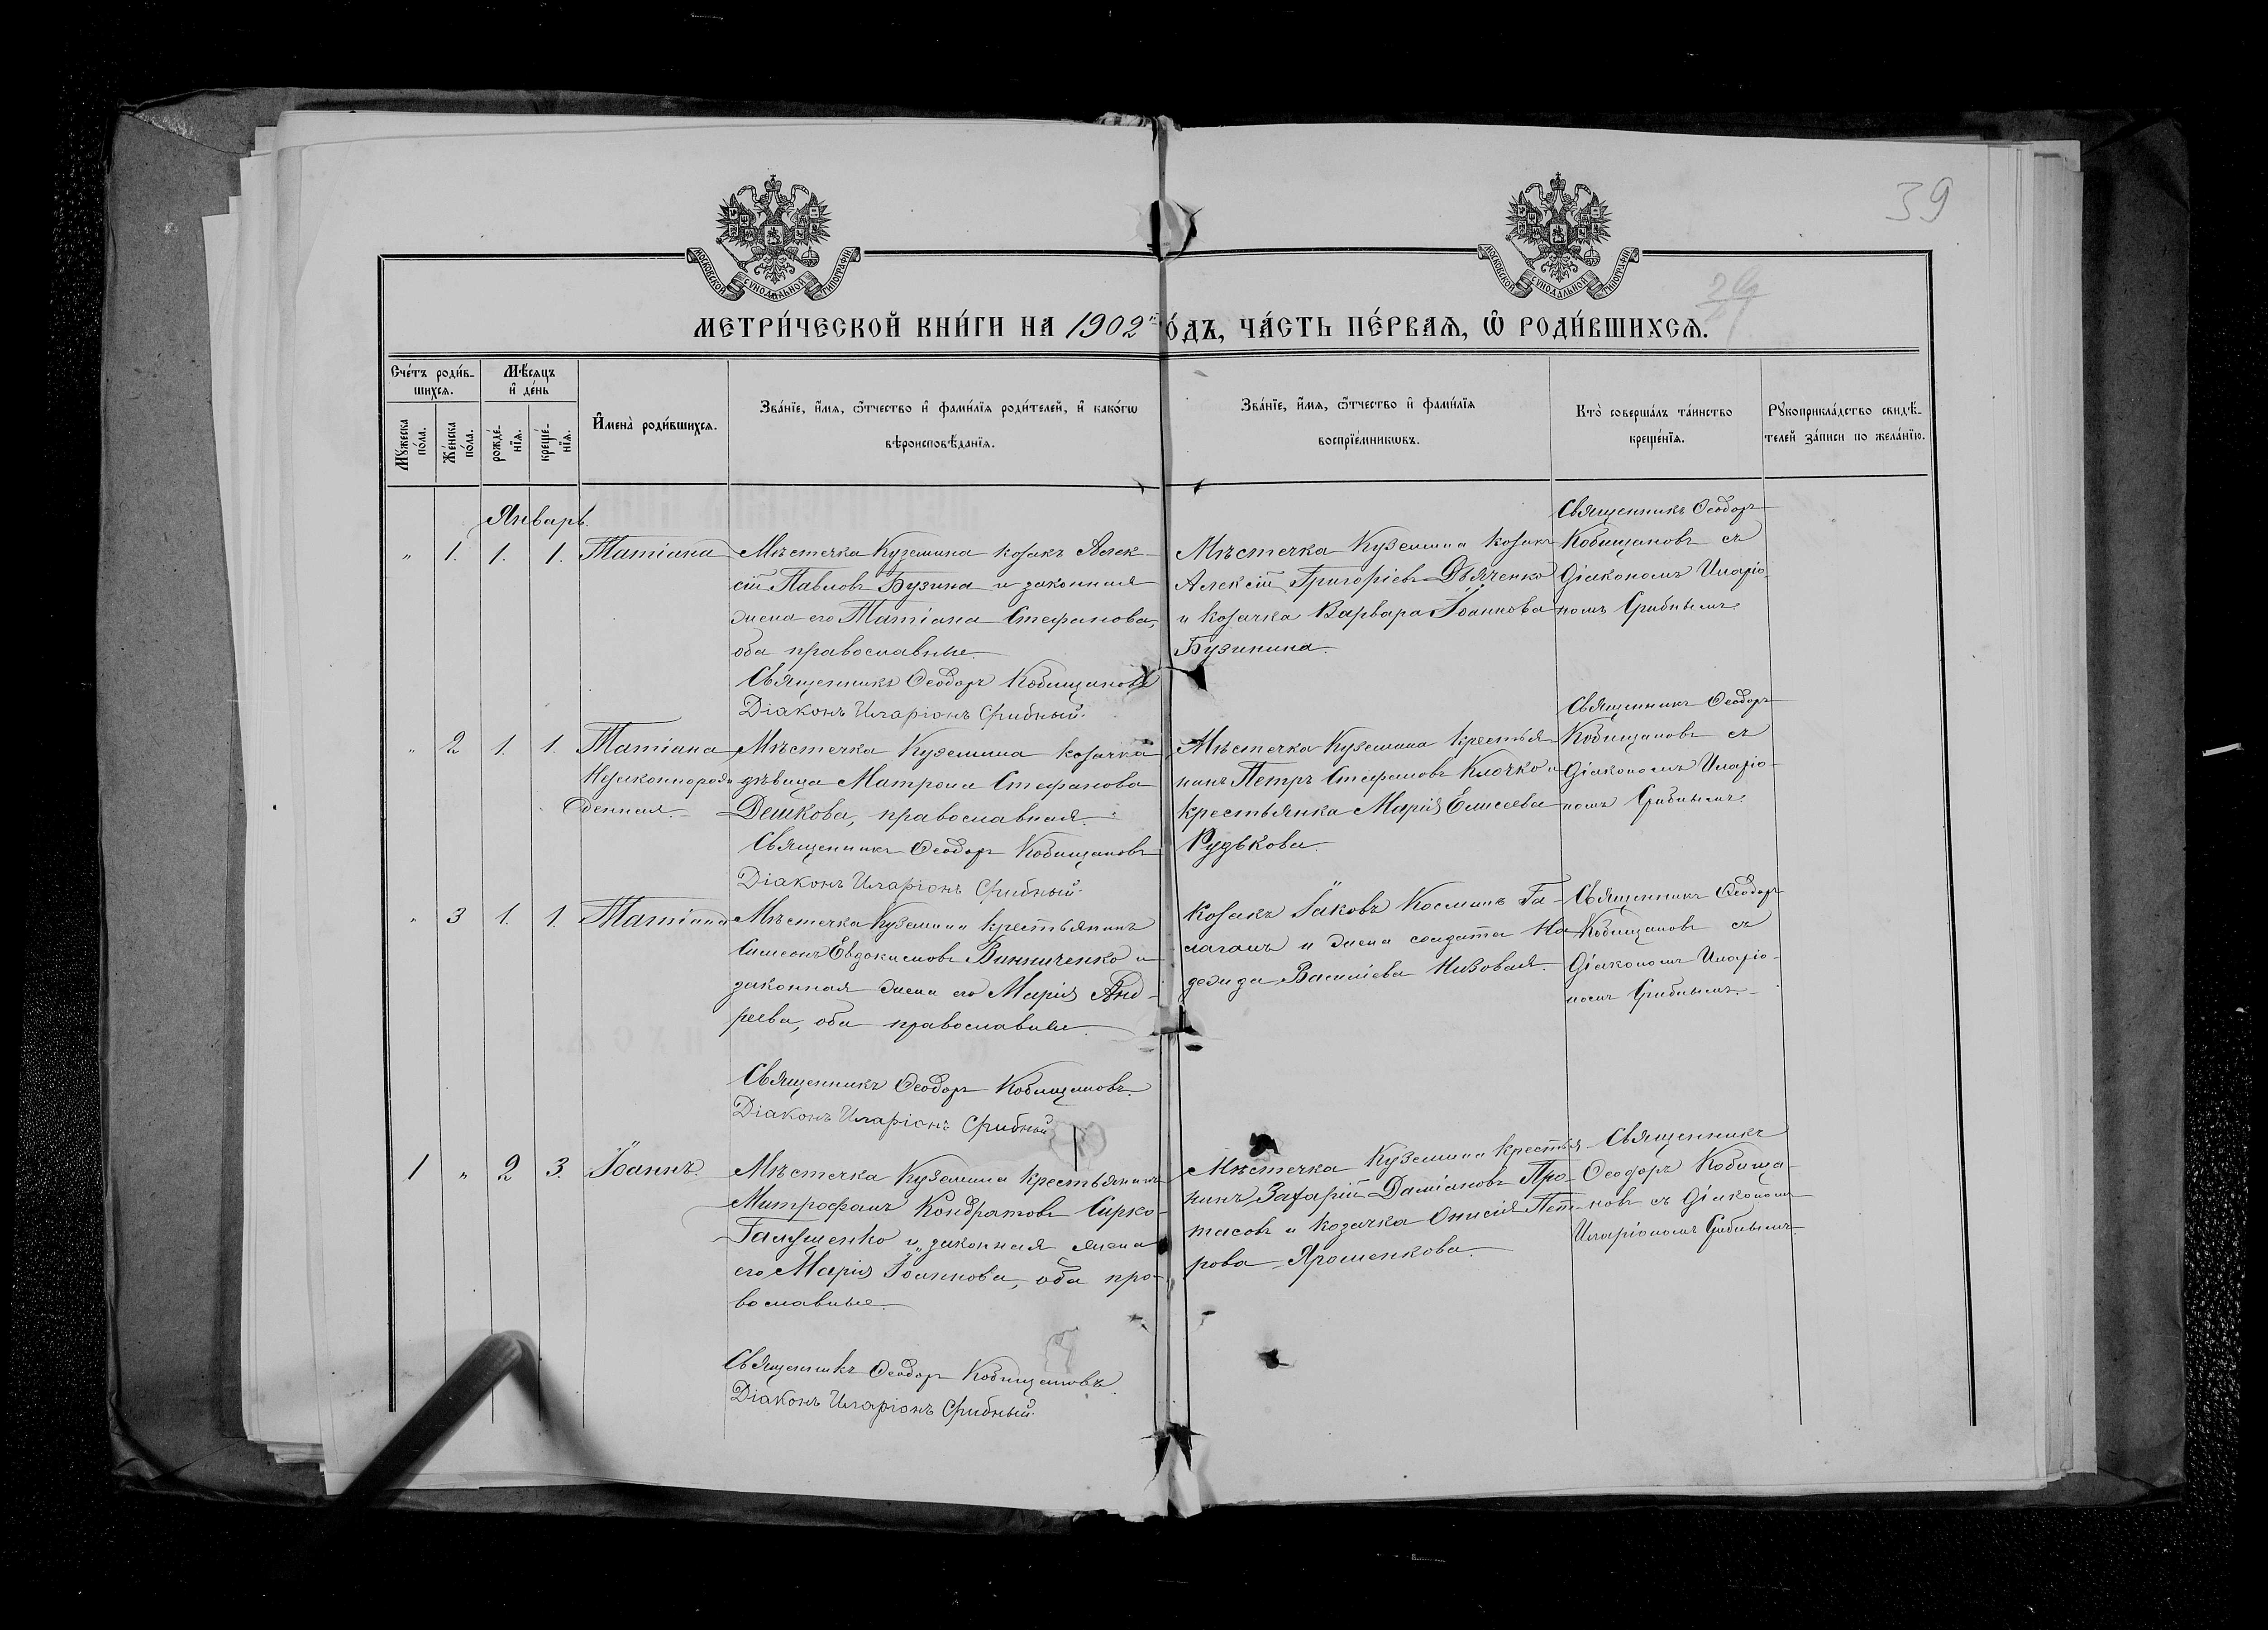 39
МОСКОВСКОЙ СѴНОДАЛЬНОЙ ТИПОГРАФІИ
МОСКОВСКОЙ СѴНОДАЛЬНОЙ ТИПОГРАФІИ
МЕТРИ́ЧЕСКОЙ КНИ́ГИ НА 1902 й
О́ДЪ, ЧА́СТЬ ПЕ́РВАѦ, Ѡ҆ РОДИ́ВШИХСѦ.
Сче́тъ роди́в-
шихсѧ.
Мꙋ́жеска по́ла.
Же́нска по́ла.
Мѣ́сѧцъ
и҆ де́нь
рожде́-нїѧ.
креще́-нїѧ.
И҆мена̀ роди́вшихсѧ.
Зва́нїе, и҆́мѧ, ѻ҆́тчество и҆ фами́лїѧ роди́телей, и҆ како́гѡ
вѣроисповѣ́данїѧ.
Зва́нїе, и҆́мѧ, ѻ҆́тчество и҆ фами́лїѧ
воспрїе́мникѡвъ.
Кто̀ соверша́лъ та́инство
креще́нїѧ.
Рꙋкоприкла́дство свидѣ́-
телей за́писи по жела́нїю.
Январь.
" 1. 1. 1. Татіана
Мѣстечка Куземина козакъ Алек-
сій Павловъ Бузина и законная
жена его Татіана Стефанова,
оба православные.
Священникъ Ѳеодоръ Кобищановъ
Діаконъ Иларіонъ Срибный.
Мѣстечка Куземина козакъ
Алексій Григоріевъ Дьяченко
и козачка Варвара Іоаннова
Бузинина.
Священникъ Ѳеодоръ
Кобищановъ съ
діакономъ Иларіо-
номъ Срибнымъ.
" 2 1. 1. Татіана
Незаконнорож-
денная.
Мѣстечка Куземина козачка
дѣвица Матрона Стефанова
Дешкова, православная.
Священникъ Ѳеодоръ Кобищановъ
Діаконъ Иларіонъ Срибный.
Мѣстечка Куземина крестья-
нинъ Петръ Стефановъ Клочко и
крестьянка Марія Елисеева
Рудькова.
Священникъ Ѳеодоръ
Кобищановъ съ
діакономъ Иларіо-
номъ Срибнымъ.
" 3 1. 1. Татіана
Мѣстечка Куземина крестьянинъ
Симеонъ Евдокимовъ Винниченко и
законная жена его Марія Анд-
реева, оба православные.
Священникъ Ѳеодоръ Кобищановъ.
Діаконъ Иларіонъ Срибный
Козакъ Іаковъ Косминъ Га-
лаганъ и жена солдата На-
дежда Василіева Низовая.
Священникъ Ѳеодоръ
Кобищановъ съ
діакономъ Иларіо-
номъ Срибнымъ.
1 " 2 3. Іоаннъ.
Мѣстечка Куземина крестьянинъ
Митрофанъ Кондратовъ Сирко-
Галушенко и законная жена
его Марія Іоаннова, оба пра-
вославные.
Священникъ Ѳеодоръ Кобищановъ.
Діаконъ Иларіонъ Срибный.
Мѣстечка Куземина крестья-
нинъ Захарій Даміановъ Про-
тасовъ и козачка Онисія Пет-
рова Ярошенкова.
Священникъ
Ѳеодоръ Кобища-
новъ съ діакономъ
Иларіономъ Срибнымъ.